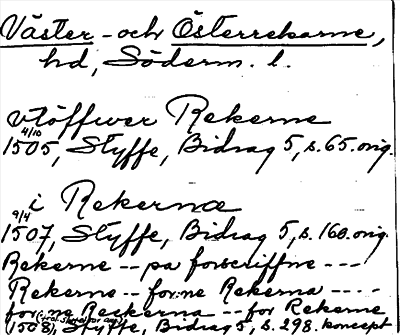 Väster- och Österrekarne,
hd, Söderm. l.
vtöffwer Rekerne
4/10
1505, Styffe, Bidrag 5, s. 65. orig.
i Rekernæ
9/4
1507, Styffe, Bidrag 5, s. 160. orig.
Rekerne -- pa forscriffne ---
Rekerne -- for:ne Rekerna ----
for:ne Reckerna -- for Rekerne
1508), Styffe, Bidrag 5, s. 298, koncept